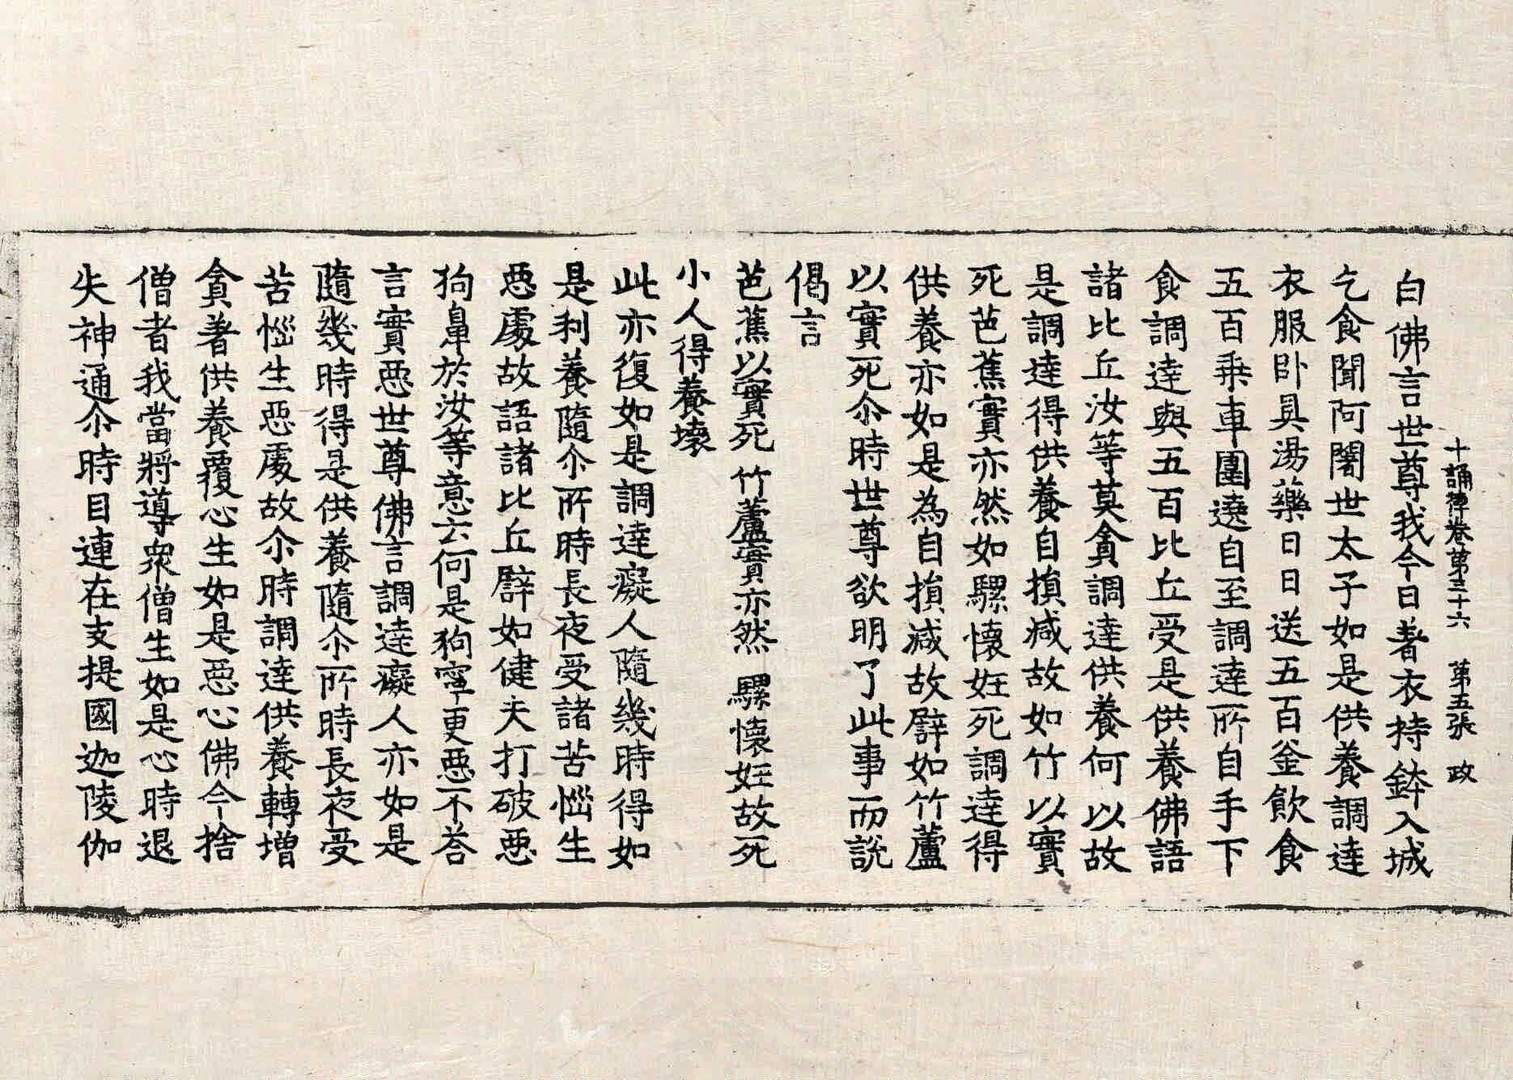 十誦律卷第三十六　第五張　政
白佛言世尊我今日著衣持鉢入城
乞食聞阿闍世太子如是供養調達
衣服卧具湯藥日日送五百釜飲食
五百乗車圍遶自至調達所自手下
食調達與五百比丘受是供養佛語
諸比丘汝等莫貪調達供養何以故
是調達得供養自損减故如竹以實
死芭蕉實亦然如騾懷妊死調達得
供養亦如是為自損减故譬如竹蘆
以實死尒時世尊欲明了此事而說
偈言
芭蕉以實死　竹蘆實亦然　騾懷妊故死
小人得養壞
此亦復如是調達癡人隨幾時得如
是利養隨尒所時長夜受諸苦惱生
惡處故語諸比丘譬如健夫打破惡
狗鼻於汝等意云何是狗寧更惡不荅
言實惡世尊佛言調達癡人亦如是
隨幾時得是供養隨尒所時長夜受
苦惱生惡處故尒時調達供養轉增
貪著供養覆心生如是惡心佛今捨
僧者我當將導衆僧生如是心時退
失神通尒時目連在支提國迦陵伽